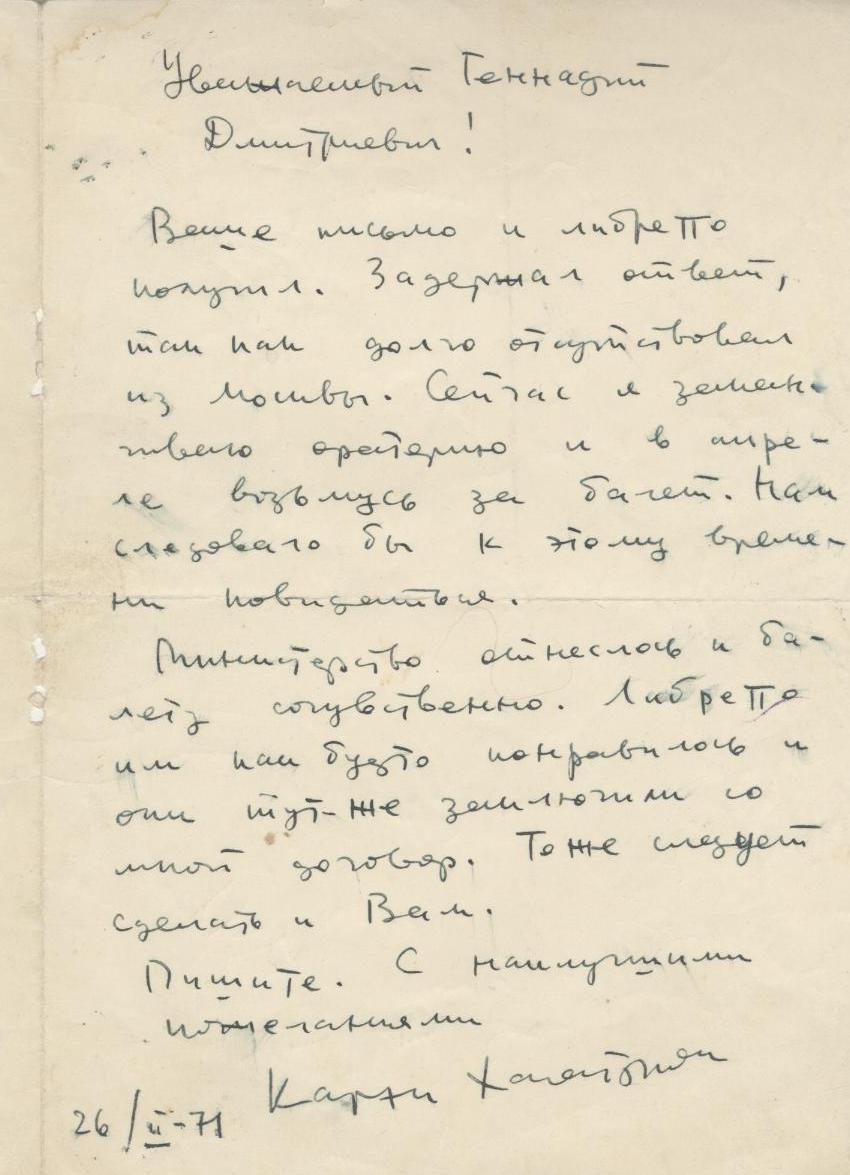 Уважаемый Геннадий
Дмитриевич!
Ваше письмо и либретто
получил. Задержал ответ,
так как долго отсутствовал
из Москвы. Сейчас я закан-
чиваю ораторию и в апре-
ле возьмусь за балет. Нам
следовало бы к этому време-
ни повидаться.
Министерство отнеслось к ба-
лету сочувственно. Либретто
им как будто понравилось и
они тут-же заключили со
мной договор. Тоже следует
сделать и Вам.
Пишите. С наилучшими
пожеланиями
Карэн Хачатурян
26/II-71